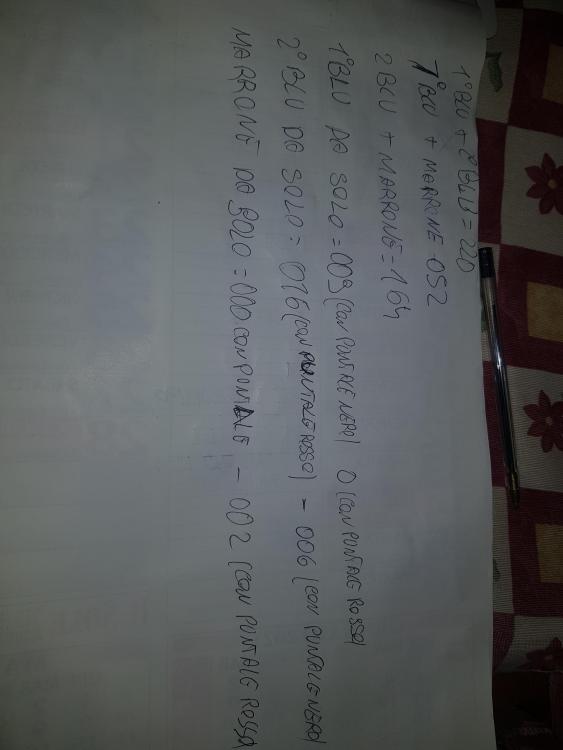 1° BLU + 2° BLU = 220
1° BLU + MARRONE = 052
2 BLU + MARRONE = 164
1° BLU DA SOLO = 009 (CON PUNTALE NERO) 0 (CON PUNTALE ROSSO)
2° BLU DA SOLO = 016 (CON PUNTALE ROSSO) - 006 (CON PUNTALE NERO)
MARRONE DA SOLO = 000 CON PUNTALE - 002 (CON PUNTALE ROSSO